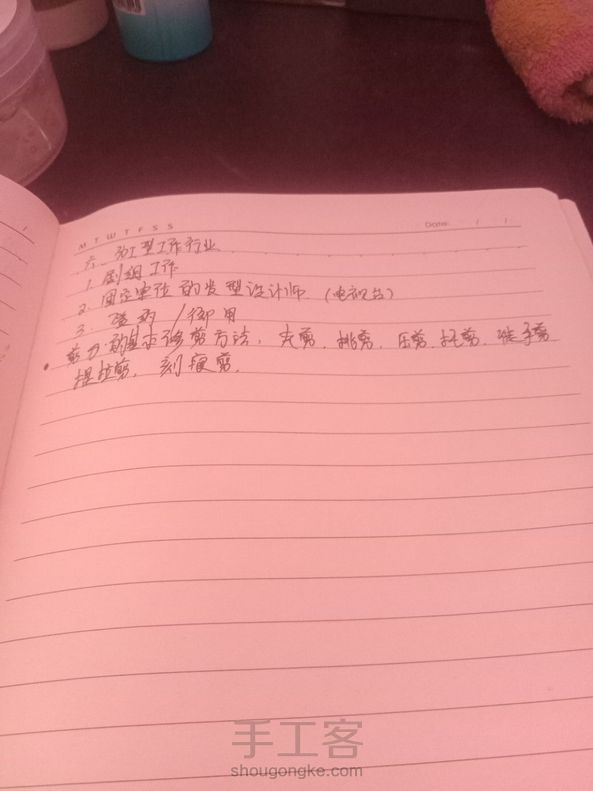 M T W T F S S
Date: / /
六. 造型工作行业
1. 剧组工作
2. 固定单位的发型设计师（电视台）
3. 签约 / 御用
剪刀的基本修剪方法. 夹剪. 挑剪. 压剪. 托剪.
提拉剪. 刻痕剪.
手工客
shougongke.com